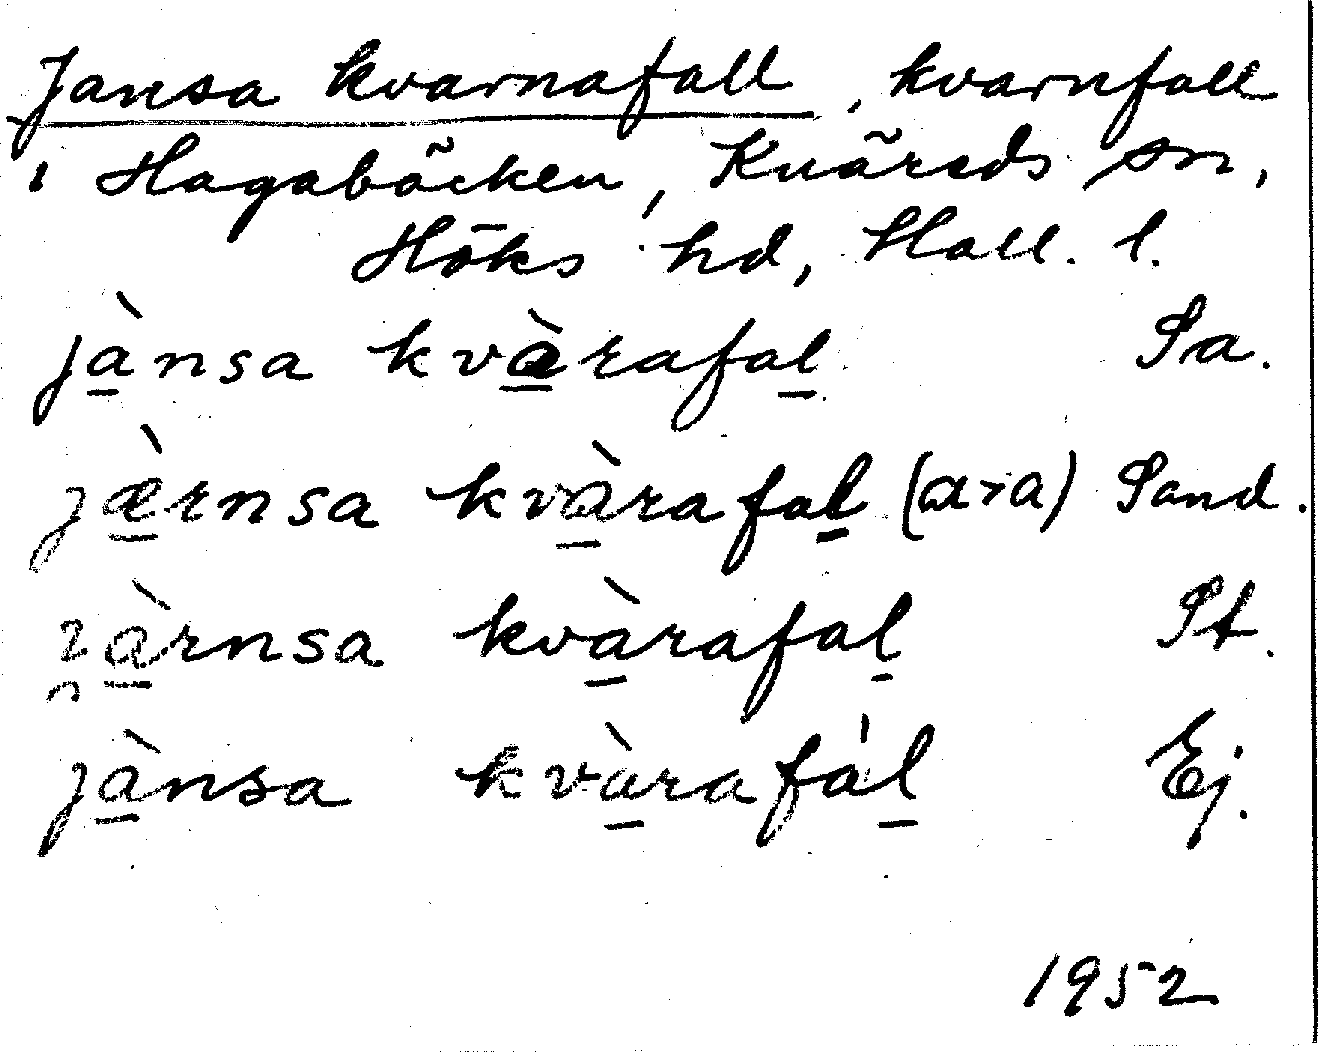 Jansa kvarnafall, kvarnfall
i Hagabäcken, Knäreds sn,
Höks hd, Hall. l.
jànsa kvàrafal Sa.
jærnsa kvàrafal (a>a) Sand.
àrnsa kvàrafal St.
jànsa kvàrafál Ej.
1952